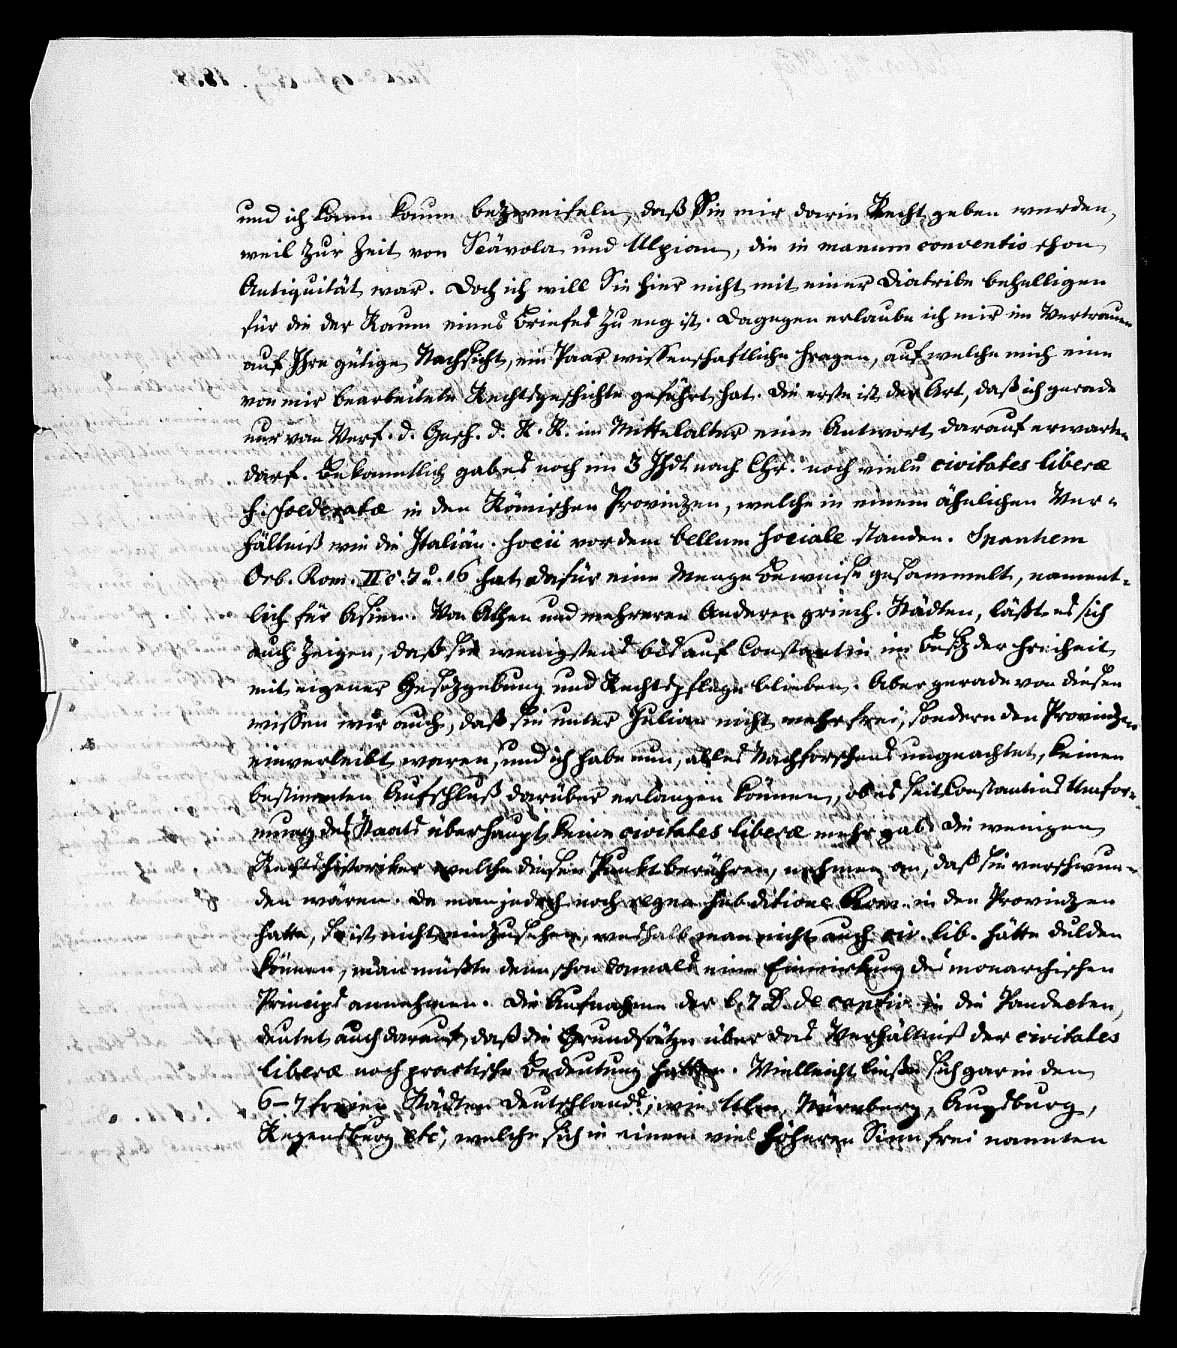 und ich kann kaum bezweifeln, daß Sie mir darin Recht geben werden,
weil zur Zeit von Scävola und Ulpian, die in manum conventio schon
Antiquität war. Doch ich will Sie hier nicht mit einer Diatribe behelligen
für die der Raum eines Briefes zu eng ist. Dagegen erlaube ich mir im Vertrauen
auf Ihre gütige Nachsicht, ein Paar wissenschaftliche Fragen, auf welche mich eine
von mir bearbeitete Rechtsgeschichte geführt hat. Die erste ist der Art, daß ich gerade
nur vom Verf. d. Gesch. d. R. R. im Mittelalter eine Antwort darauf erwarten
darf. Bekanntlich gab es noch im 3 Jhdt nach Chr. noch viele civitates liberæ
s. foederatæ in den Römischen Provinzen, welche in einem ähnlichen Ver-
hältniß wie die Italiän. socii vor dem bellum sociale standen. Spanhem
Orb. Rom. II c. 7 u. 16 hat dafür eine Menge Beweise gesammelt, nament-
lich für Asien. Von Athen und mehreren Anderen griech. Städten, läßt es sich
auch zeigen, daß sie wenigstens bis auf Constantin im Besitz der Freiheit
mit eigener Gesetzgebung und Rechtspflege blieben. Aber gerade von diesen
wissen wir auch, daß sie unter Julian nicht mehr frei, sondern den Provinzen
einverleibt waren, und ich habe nun, alles Nachforschens ungeachtet, keinen
bestimmten Aufschluß darüber erlangen können, ob es seit Constantins Umfor-
mung des Staats überhaupt keine civitates liberæ mehr gab. Die wenigen
Rechtshistoriker welche diesen Punkt berühren, nehmen an, daß sie verschwun-
den wären. Da man jedoch noch regna sub ditione Rom. in den Provinzen
hatte, so ist nicht einzusehen, weshalb man nicht auch civ. lib. hätte dulden
können, man müßte denn schon damals eine Einwirkung des monarchischen
Princips annehmen. Die Aufnahme der l. 7 D. de captiv. in die Pandecten,
deutet auch darauf, daß die Grundsätze über das Verhältniß der civitates
liberæ noch practische Bedeutung hatten. Vielleicht ließe sich gar in den
6-7 freien Städten Deutschlands, wie Ulm, Nürnberg, Augsburg,
Regensburg etc, welche sich in einem viel höheren Sinn frei nannten